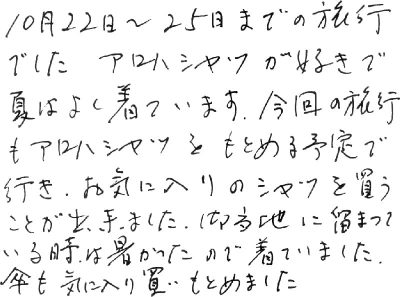 10月22日～25日までの旅行
でした アロハシャツが好きで
夏はよく着ています。今回の旅行
もアロハシャツをもとめる予定で
行き、お気に入りのシャツを買う
ことが出来ました。現地に留まって
いる時は暑かったので着ていました。
傘も気に入り買いもとめました